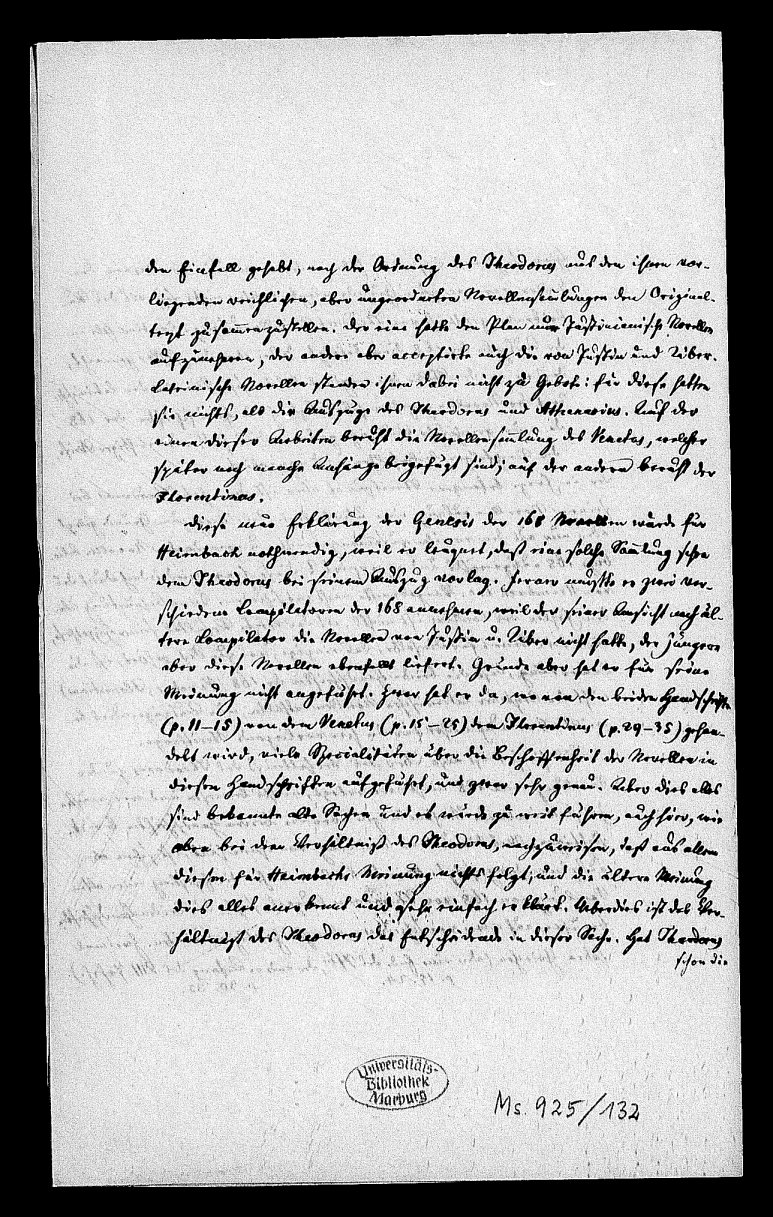 den Einfall gehabt, nach der Ordnung des Theodorus aus den ihnen vor-
liegenden reichlichen, aber ungeordneten Novellensamlungen den Original-
text zusammenzustellen. Der eine hatte den Plan nur Justinianische Novellen
aufzunehmen, der andere aber acceptirte auch die von Justin und Tiber.
Lateinische Novellen standen ihnen dabei nicht zu Gebote: für diese hatten
sie nichts, als die Auszüge des Theodorus und Athanasius. Auf der
einen dieser Arbeiten beruht die Novellensamlung des Venetus, welcher
später noch manche Anhänge beigefügt sind; auf der andern beruht der
Florentinus.
Diese neue Erklärung der Genesis der 168 Novellen wurde für
Heimbach nothwendig, weil er leugnet, daß eine solche Samlung schon
dem Theodorus bei seinem Auszug vorlag. Ferner mußte er zwei ver-
schiedene Compilatoren der 168 annehmen, weil der seiner Ansicht nach äl-
tere Compilator die Novellen von Justin u. Tiber nicht hatte, der jüngere
aber diese Novellen ebenfalls liefert. Gründe aber hat er für seine
Meinung nicht angeführt. Zwar hat er da, wo von den beiden Handschriften
(p. 11–15) von dem Venetus (p. 15–25) dem Florentinus (p. 29–35) gehan-
delt wird, viele Specialitäten über die Beschaffenheit der Novellen in
diesen Handschriften aufgeführt, und zwar sehr genau. Aber dies alles
sind bekannte alte Sachen und es würde zu weit führen, auch hier, wie
oben bei dem Verhältniß des Theodorus, nachzuweisen, daß aus allem
diesem für Heimbachs Meinung nichts folgt, und die ältere Meinung
dies alles anerkennt und sehr einfach erklärt. Ueberdies ist das Ver-
hältniß des Theodorus das Entscheidende in dieser Sache. Hat Theodorus
schon die
Universitäts-
Bibliothek
Marburg
Ms. 925/132